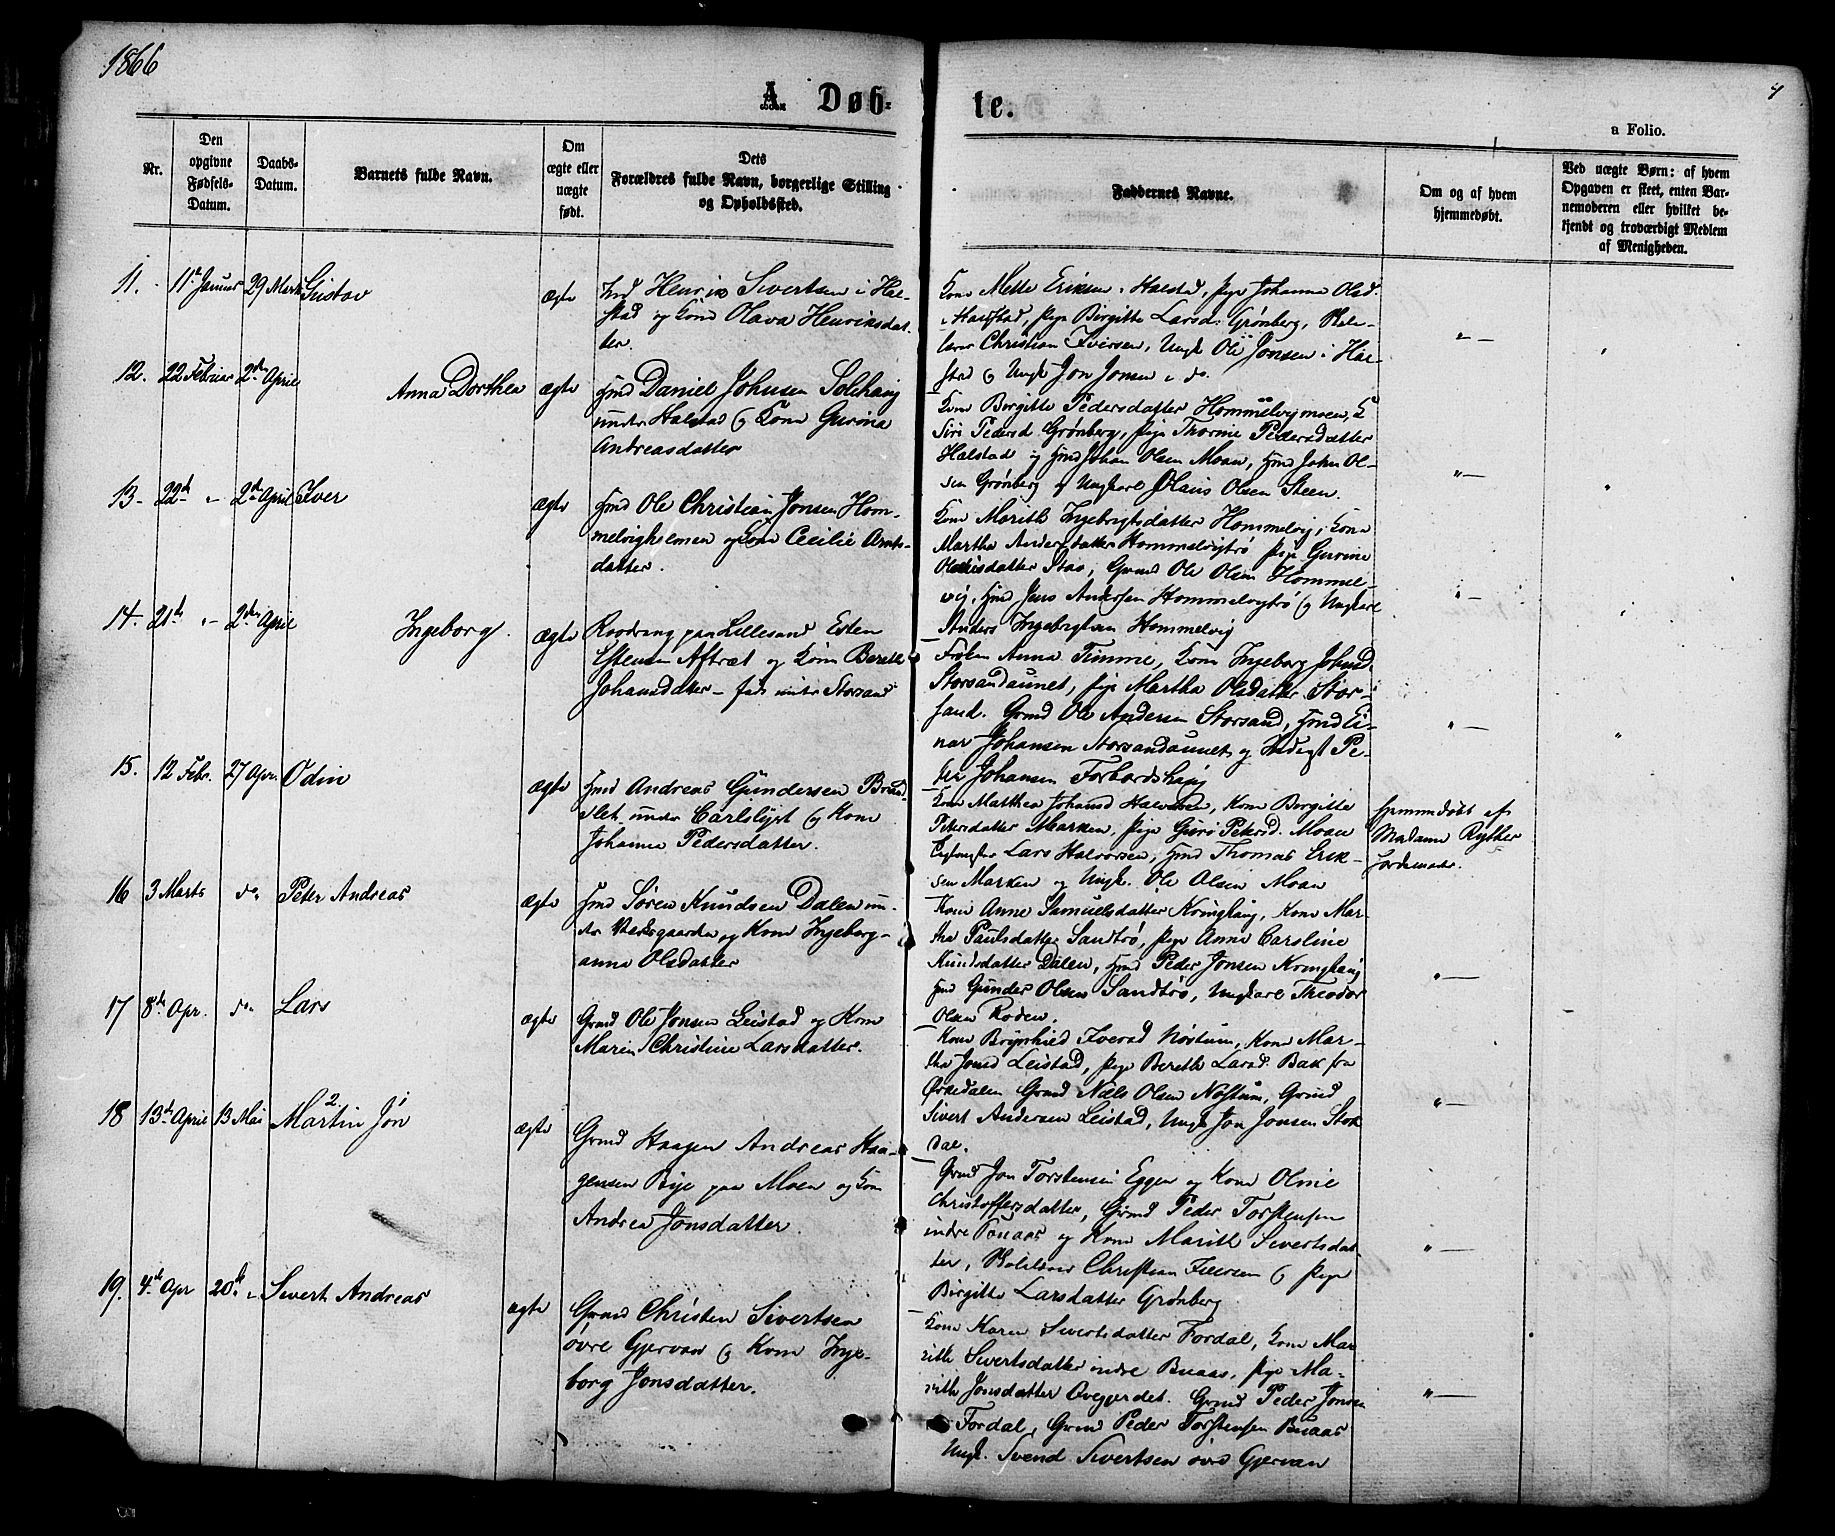 1866
A. Døb-
te.
a Folio.
Nr.
Den opgivne Fødsels-Datum.
Daabs-Datum.
Barnets fulde Navn.
Om ægte eller uægte født.
Dets
Forældres fulde Navn, borgerlige Stilling
og Opholdssted.
Faddernes Navne.
Om og af hvem
hjemmedøbt.
Ved uægte Børn: af hvem
Opgaven er skeet, enten Bar-
nemoderen eller hvilket be-
kjendt og troværdigt Medlem
af Menigheden.
11. 11te Januar 29 Marts Gustav
ægte
Ind Henrik Sivertsen i Hal-
stad og Kone Olava Henriksdat-
ter.
Kone Mette Eriksen i Halstad, Pige Johanna Olsd.
Halstad, Pige Birgitte Larsd. Grønberg, Skole-
lærer Christian Iversen, Ungk Ole Jonsen i Hal-
stad og Ungk Jon Jonsen i do.
12. 22 Februar 2den April
Anna Dorthea
ægte
Hmd Daniel Johnsen Solihaug
under Halstad og Kone Gurina
Andreasdatter
Kone Birgitte Pedersdatter Hommelvigmoen, K
Siri Pedersd Grønberg, Pige Thorine Pedersdatter
Halstad og Hmd Johan Olsen Moan, Hmd John Ol-
sen Grønberg og Ungkarl Olaus Olsen Steen.
13. 22de " 2den April Iver
ægte
Hmd Ole Christian Jonsen Hom-
melvigmoen og Kone Cecilie Arnts-
datter.
Kone Marith Ingebrigtsdatter Hommelvig, Kone
Martha Andersdatter Hommelvigtrø Pige Gurine
Olausdatter Stav, Gmd Ole Olsen Hommel-
vig, Hmd Jens Andersen Hommelvigtrø og Ungkarl
Anders Ingebrigtsen Hommelvig
14. 21de " 2den April
Ingeborg.
ægte
paa Lillesand Esten
Estensen Aftret og Kone Berethe
Johansdatter - under Storsand
Frøken Anna Timme, Kone Ingeborg Johnsd.
Storsandaunet, Pige Martha Olsdatter Stor-
sand. Gmd Ole Andersen Storsand, Hmd Ei-
nar Johansen Storsandaunet og Indregt Pe-
ter Johansen Forbordshaug
15. 12 Febr. 27 Apr. Odin
ægte
Hmd Andreas Gundersen
slet under Carlslyst og Kone
Johanna Pedersdatter.
Kone Matthea Johansd Halvorsen, Kone Birgitte
Petersdatter Marken, Pige Guro Petersd. Moan
Lars Halvorsen, Hmd Thomas Erik-
sen Marken og Ungk. Ole Olsen Moan
Hjemmedøbt af
Madame Rygther
Jordemoder.
16 3 Marts do. Peter Andreas
ægte
Hmd Søren Knudsen Dalen un-
der og Kone Ingeborg-
anna Olsdatter
Kone Anne Samuelsdatter Kringhaug, Kone Mar-
tha Paulsdatter Sandtrø, Pige Anne Caroline
Knudsdatter Dalen, Hmd Peder Jonsen Kringhaug
Hmd Gunder Olsen Sandtrø, Ungkarl Theodor
Olsen Roden.
17 8de Apr. do. Lars
ægte
Gmd Ole Jonsen Leistad og Kone
Marin Christine Larsdatter.
Kone Brynhild Iversd Nøstum, Kone Mar-
tha Jonsd Leistad, Pige Bereth Larsd. Bak fra
Ørkedalen Gmd Nils Olsen Nøstum, Gmd
Sivert Andersen Leistad, Ungk Jon Jonsen Stok-
dal.
18 13de April 13 Mai Martin 2 Jøn
ægte
Gmd Haagen Andreas Haa-
gensen Bye paa Moen og Kone
Andrea Jonsdatter.
Gmd Jon Torstensen Eggen og Kone Oline
Christoffersdatter, Gmd Peder Torstensen
indre Buaas og Kone Marith Sivertsdat-
ter, Skolelærer Christian Iversen og Pige
Birgitte Larsdatter Grønberg
19. 4de Apr 20de " Sivert Andreas
ægte
Gmd Christen Sivertsen
øvre Gjervan og Kone Inge-
borg Jonsdatter.
Kone Karen Sivertsdatter Fordal, Kone Mar-
rith Sivertsdatter indre Buaas, Pige Ma-
rith Jonsdatter Øvegjerdet. Gmd Peder Jonsen
Fordal, Gmd Peder Torstensen Buaas
Ungk. Svend Sivertsen øvre Gjervan